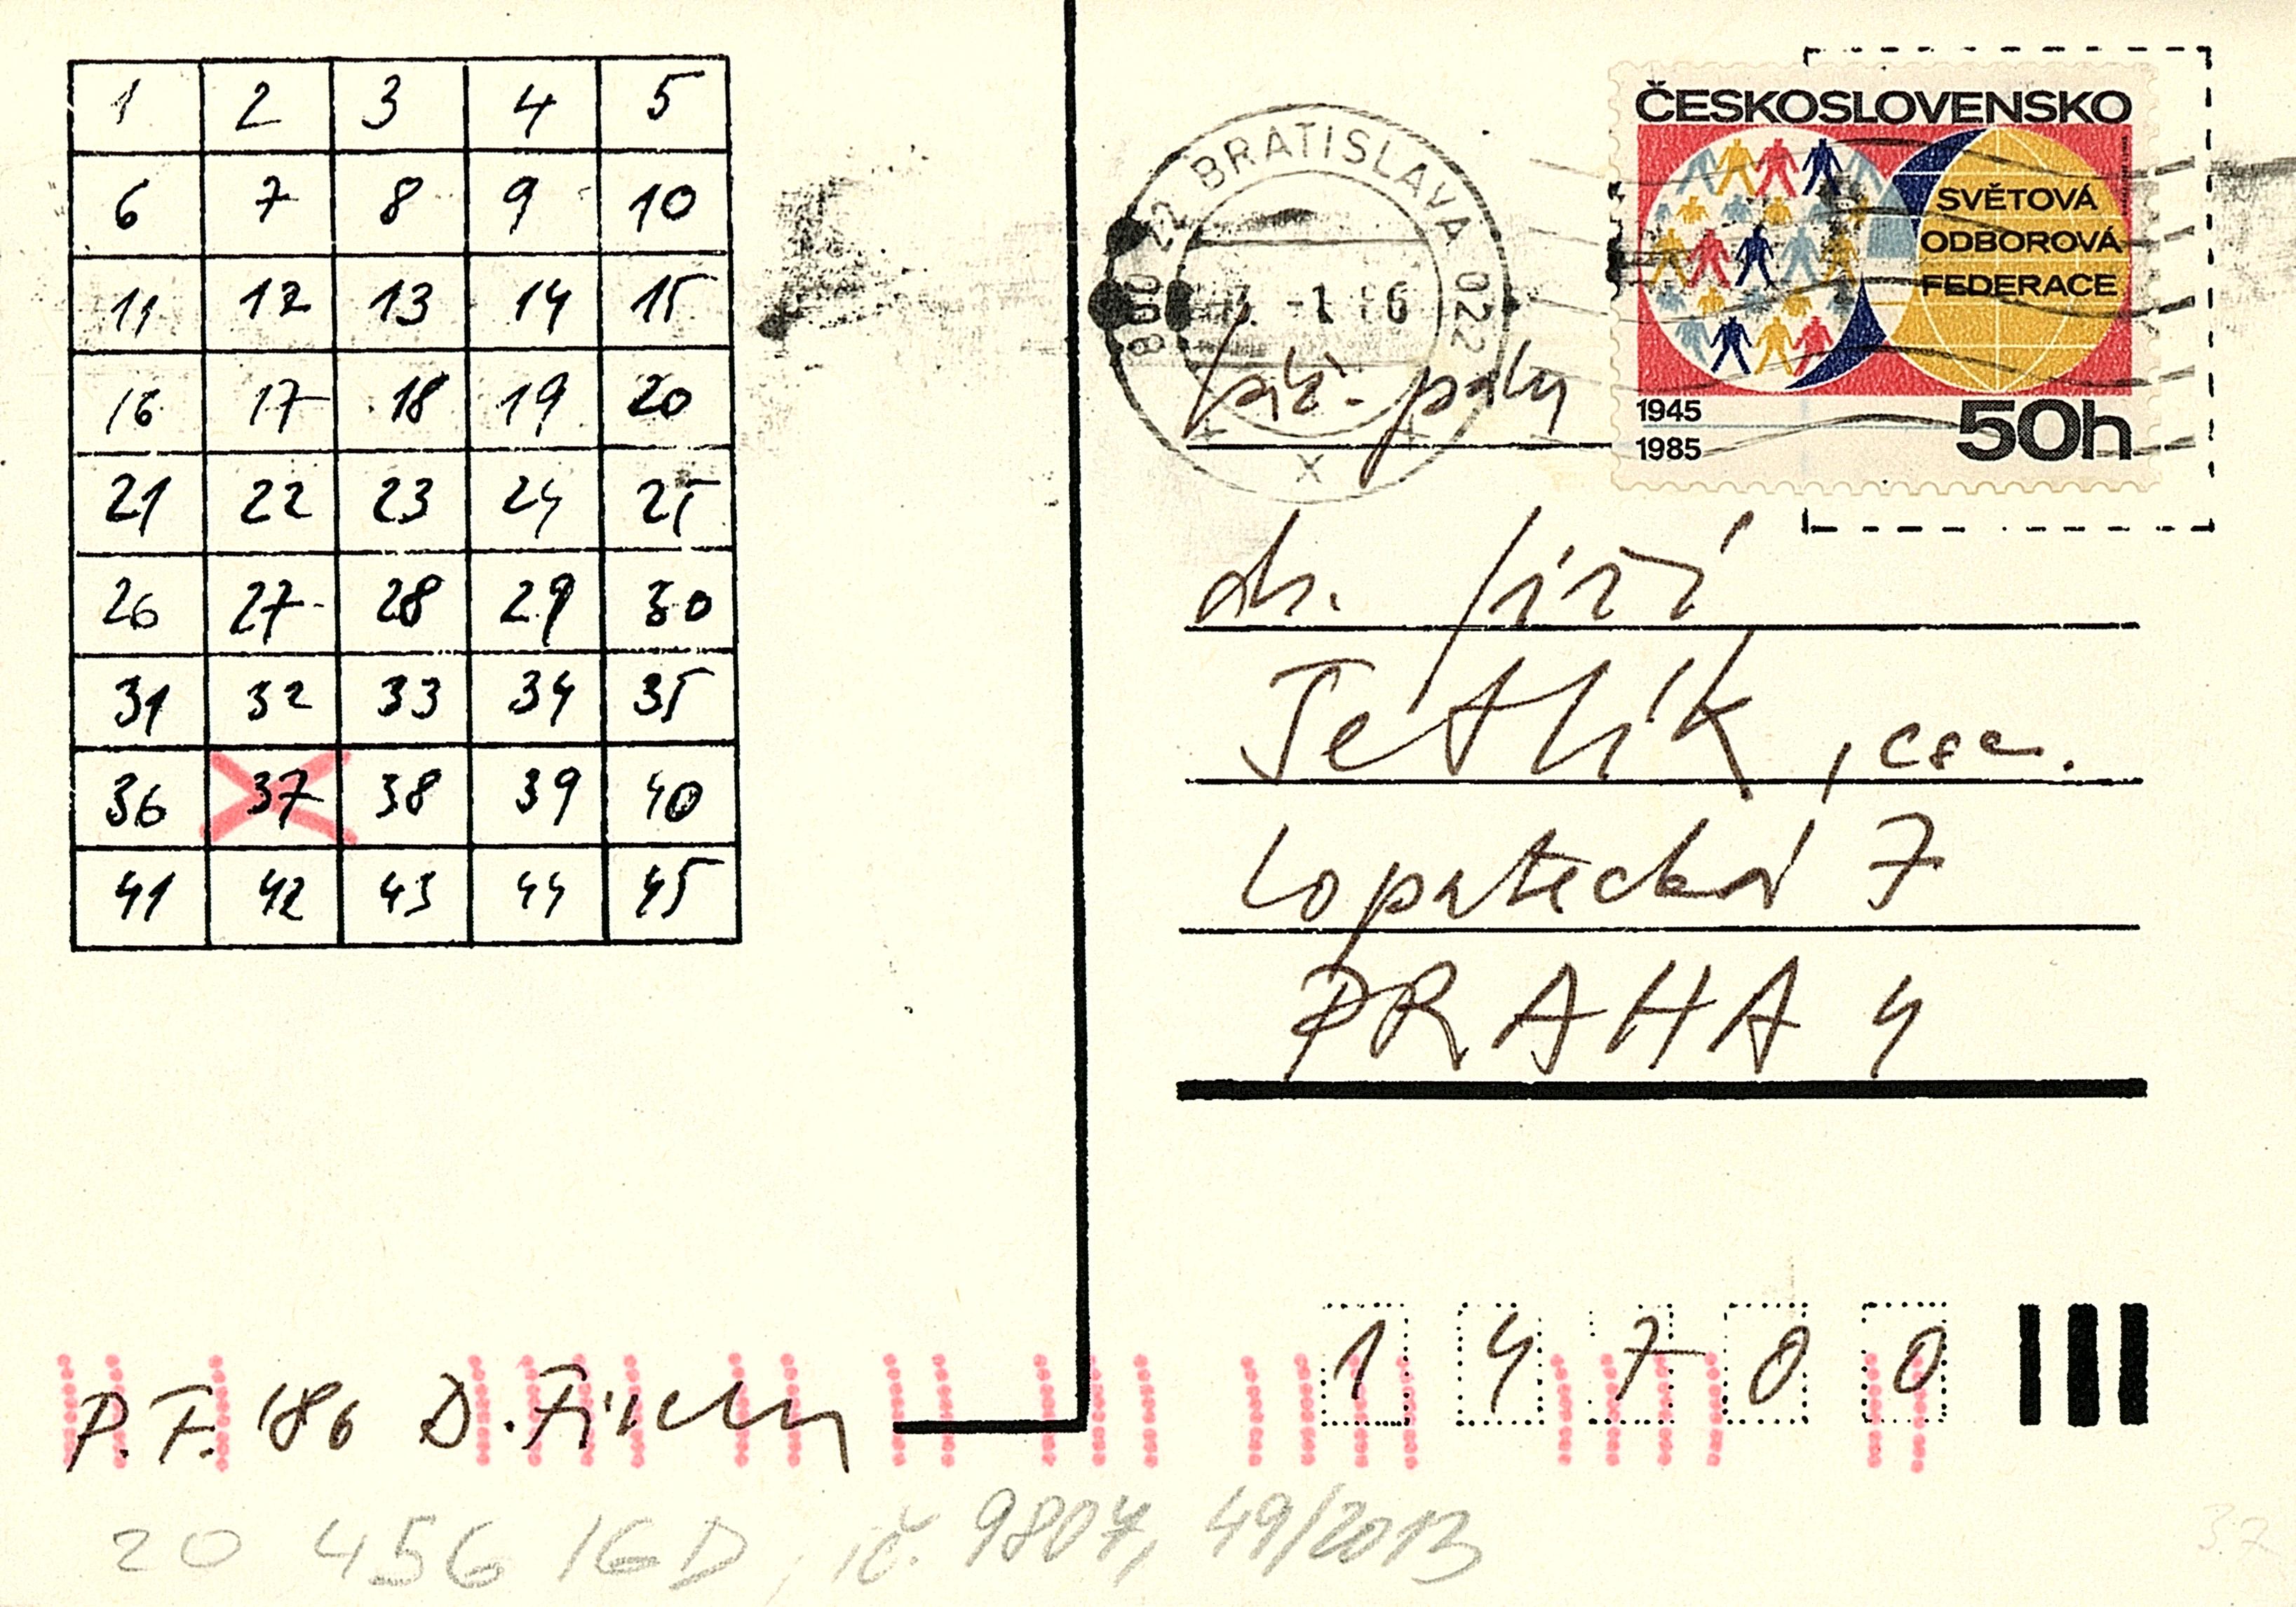 1 2 3 4 5
6 7 8 9 10
11 12 13 14 15
16 17 18 19 20
21 22 23 24 25
26 27 28 29 30
31 32 33 34 35
36 37 38 39 40
41 42 43 44 45
P.F. '86 D. Fischer
20 456 IGD, ič. 9807, 49/2013
800 22 BRATISLAVA 022
X
ČESKOSLOVENSKO
SVĚTOVÁ
ODBOROVÁ
FEDERACE
1945
1985
50h
dr. Jiří
Šetlík, csc.
Lopatecká 7
PRAHA 4
14700
37